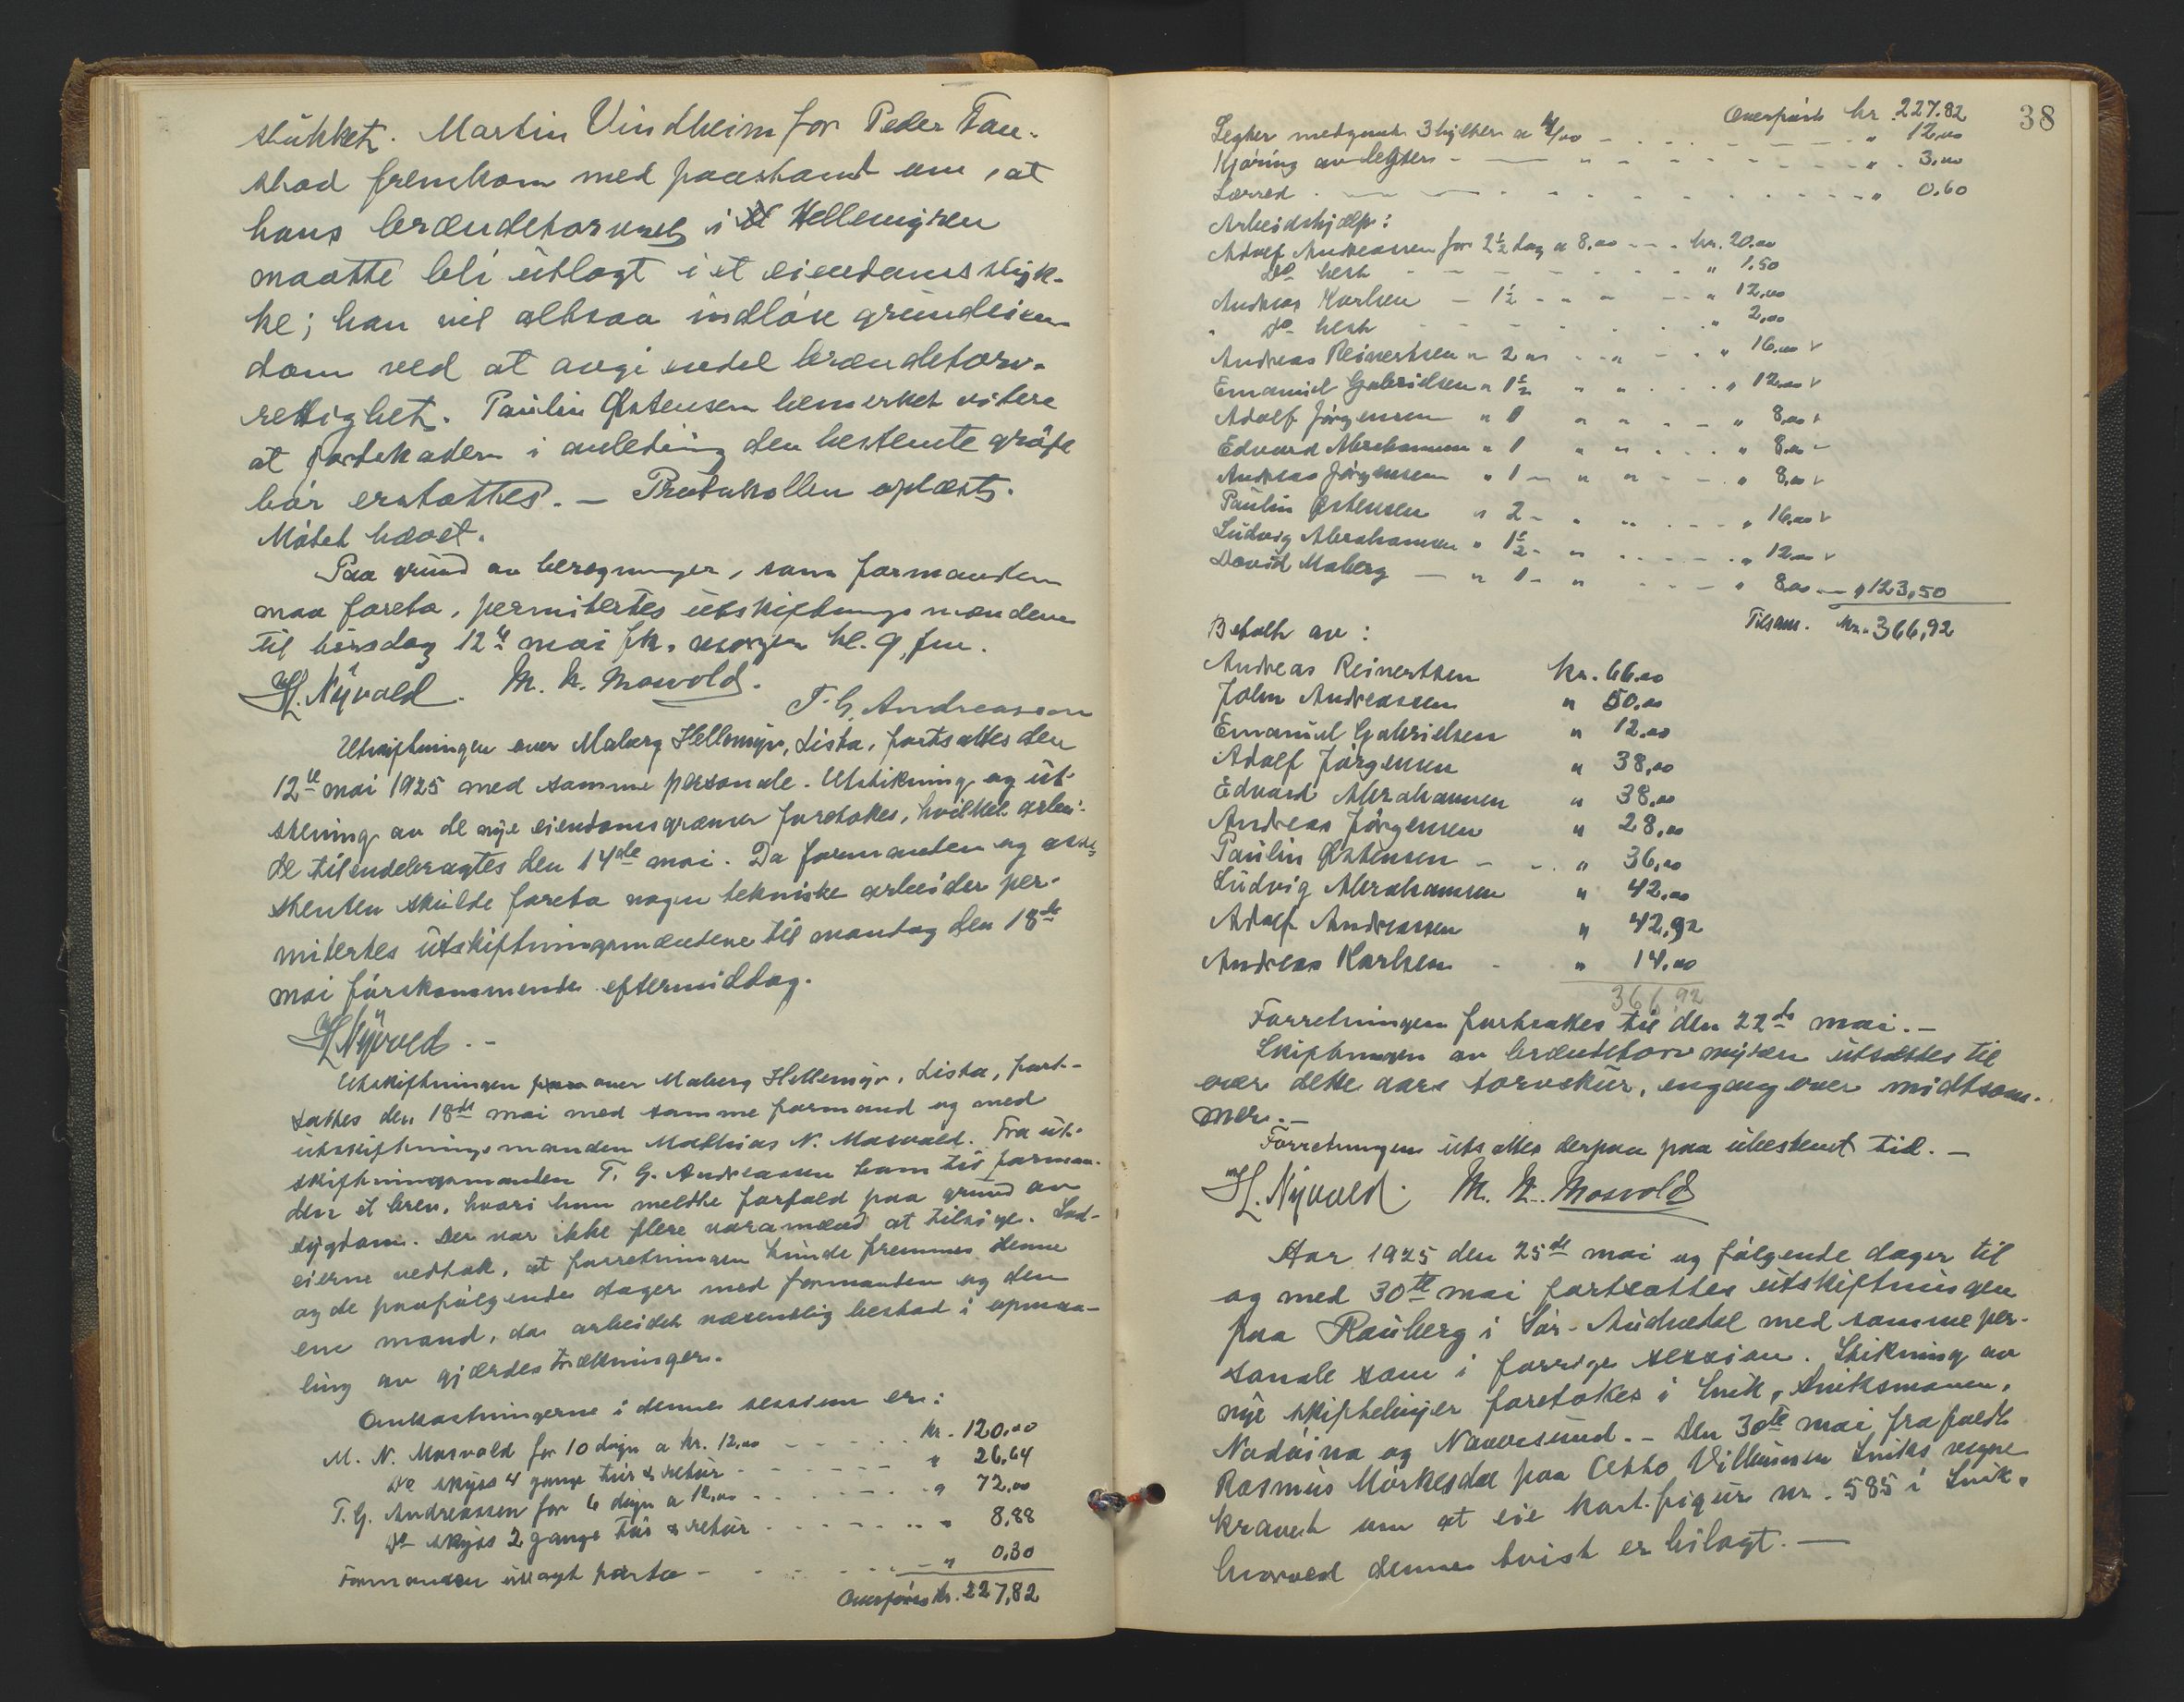 stükket. Martin Vindheim for Peder Tau-
stad fremkom med paastand om, at
hans brændetorvmyr i Hellemyren
maatte bli ütlagt i et eiendomsstyk-
ke; han vil altsaa indløse gründeien-
dom ved at avgi endel brændetorv-
rettighet. Paülin Østensen bemerket videre
at jordskaden i anledning den bestemte grøft
bør erstattes. — Protokollen oplæst.
Møtet hævet.
Paa gründ av beregninger, som formanden
maa foreta, permitertes ütskiftningsmændene
til tirsdag 12te mai fk. morgen kl. 9 fm.
H. Nyvold. M. N. Mosvold.
T. G. Andreassen
Utskiftningen over Maberg Hellemyr, Lista, fortsattes den
12te mai 1925 med samme personale. Utstikning og üt-
stening av de nye eiendomsgrænser foretokes, hvilket arbei-
de tilendebragtes den 14de mai. Da formanden og assi-
stenten skülde foreta nogen tekniske arbeider per-
mitertes ütskiftningsmændene til mandag den 18de
mai førstkommende eftermiddag.
H. Nyvold. -
Utskiftningen over Maberg Hellemyr, Lista, fort-
sattes den 18de mai med samme formand og med
ütskiftningsmanden Mathias N. Mosvold. Fra üt-
skiftningsmanden T. G. Andreassen kom til forman-
den et brev, hvori han meldte forfald paa gründ av
sygdom. Der var ikke flere varamænd at tilsige. Lod-
eierne vedtok, at forretningen künde fremmes denne
og de paafølgende dager med formanden og den
ene mand, da arbeidet væsentlig bestod i opmaa-
ling av gjærdestrækninger.
Omkostningerne i denne session er:
M. N. Mosvold for 10 døgn a kr. 12,00 - - - kr. 120,00
Do skyss 4 gange tür & retür - - - " 26,64
T. G. Andreassen for 6 døgn a 12,00 - - - " 72,00
Do skyss 2 gange tür & retür - - - " 8,88
Formanden ütlagt porto - - - " 0,30
Overføres kr. 227,82
38
Overført kr. 227.82
Legter medgaat 3 hylter a 4/00 - - - " 12,00
Kjøring av legter - - - " 3,00
Lærred - - - " 0,60
Arbeidshjælp:
Adolf Andreassen for 2½ dag a 8,00 - - - kr. 20,00
Do hest - - - " 1,50
Andreas Karlsen - 1½ - - - " 12,00
" Do hest - - - " 2,00
Andreas Reinertsen " 2 " - - - " 16,00 v
Emanuel Gabrielsen " 1½ " " - - - " 12,00 v
Adolf Jørgensen " 1 " " - - - " 8,00 v
Edvard Abrahamsen " 1 " " - - - " 8,00 -
Andreas Jørgensen " 1 - " " - - - " 8,00 v
Paülin Østensen " 2 - " " - - - " 16,00 v
Lüdvig Abrahamsen " 1½ - " - - - " 12,00 v
David Maberg - " 1 - " - - - " 8,00 - " 123,50
Tilsam. kr. 366,92
Betalt av:
Andreas Reinertsen kr. 66,00
John Andreassen " 50,00
Emanuel Gabrielsen " 12,00
Adolf Jørgensen " 38,00
Edvard Abrahamsen " 38,00
Andreas Jørgensen " 28,00
Paülin Østensen - - " 36,00
Lüdvig Abrahamsen " 42,00
Adolf Andreassen " 42,92
Andreas Karlsen - " 14,00
366,92
Forretningen fortsattes til den 22de mai. -
Skiftningen av brændetorvmyren ütsættes til
over dette aars torvskür, engang over midtsom-
mer. -
Forretningen ütsattes derpaa paa übestemt tid. -
H. Nyvold. M. N. Mosvold
Aar 1925 den 25de mai og følgende dager til
og med 30te mai fortsattes ütskiftningen
paa Raüberg i Sør-Aüdnedal med samme per-
sonale som i forrige session. Stikning av
nye skiftelinjer foretokes i Snik, Sniksmonen,
Nodøina og Naavesünd. - Den 30te mai frafaldt
Rasmüs Mørkesdal paa Otto Vilhümsen Sniks vegne
kravet om at eie kart.figür nr. 585 i Snik,
hvorved denne tvist er bilagt. —